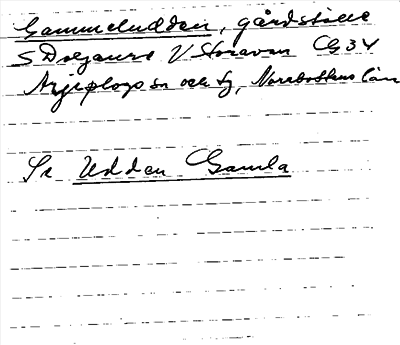 Gammeludden, gårdställe
S Doljaure V Storavan CG34
Arjeplogs sn och tg, Norrbottens län
Se Udden Gamla